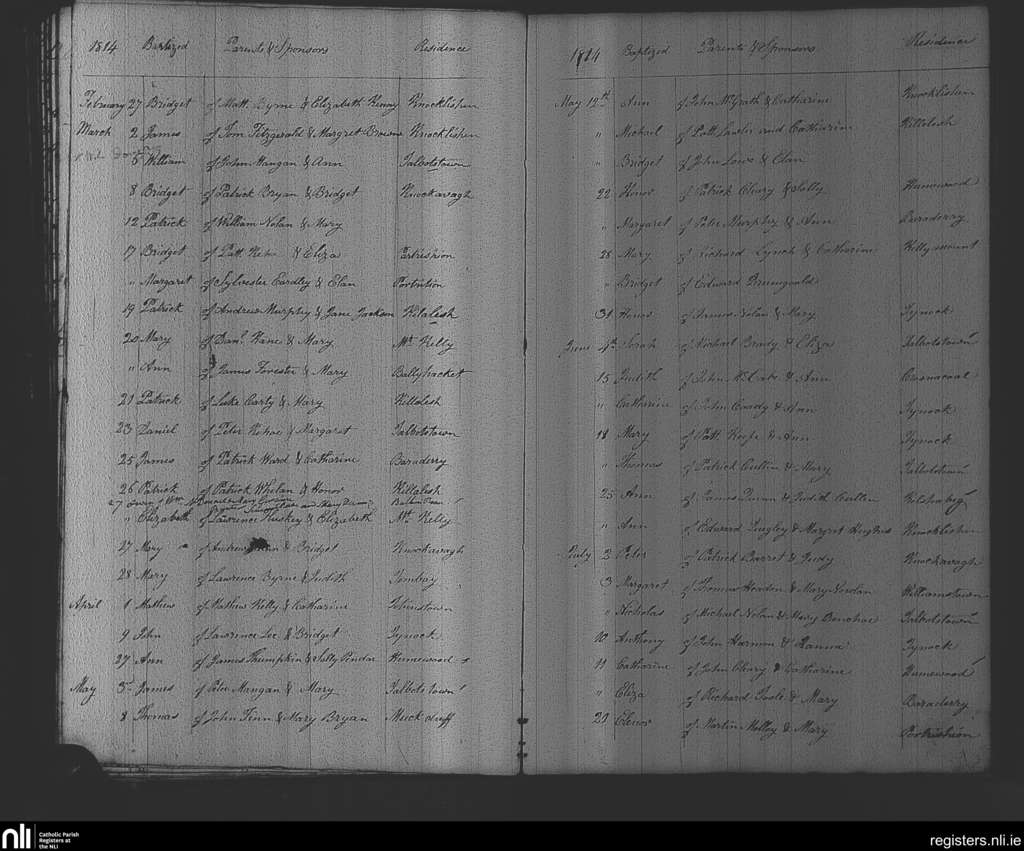 1814 Baptized Parents & Sponsors Residence
February 27 Bridget of Matt. Byrne & Elizabeth Kenny Knocklishen
March 2 James of Tom Fitzgerald & Margret Browne Knocklishen
5 William of John Mangan & Ann Talbotstown
8 Bridget of Patrick Bryan & Bridget Knockavagh
12 Patrick of William Nolan & Mary
17 Bridget of Patt Kehoe & Eliza
" Margaret of Sylvester Eardley & Elan
19 Patrick of Andrew Murphy & Jane Jackson Kilalesh
20 Mary of Danl. Kane & Mary Mt Kelly
" Ann of James Forester & Mary Ballyhacket
21 Patrick of Luke Carty & Mary Killalesh
23 Daniel of Peter Kehoe & Margaret Talbotstown
25 James of Patrick Ward & Catharine Baraderry
26 Patrick of Patrick Whelan & Honor Killalish
" Elizabeth of Lawrence Huskey & Elizabeth Mt Kelly
27 Mary of Andrew & Bridget Knockavagh
28 Mary of Lawrence Byrne & Judith Tombay
April 1 Mathew of Mathew Kelly & Catharine Tobinstown
9 John of Lawrence Lee & Bridget Tynock
27 Ann of James Thumpkin & Sally Pendar Humewood
May 5 James of Peter Mangan & Mary Talbotstown
8 Thomas of John Finn & Mary Bryan Muckduff
1814 Baptized Parents & Sponsors Residence
May 12th Ann of John McGrath & Catharine Knocklishen
" Michael of Patt Lawler and Catharine Killalesh
" Bridget of John Lowe & Elan
22 Honor of Patrick Cleary & Sally Humewood
" Margaret of Peter Murphy & Ann Baraderry
28 Mary of Richard Lynch & Catharine Kellymount
" Bridget of Edward
31 Honor of James Nolan & Mary Tynock
June 4th Sarah of Michael Brady & Eliza Talbotstown
15 Judith of John & Ann
" Catharine of John Coady & Ann Tynock
18 Mary of Patt Keefe & Ann Tynock
" Thomas of Patrick Cullen & Mary Talbotstown
25 Ann of James Quinn & Judith Cullen
" Ann of Edward & Margret Hughes Knocklishen
July 2 Peter of Patrick Barret & Judy Knockavagh
3 Margaret of Thomas Headon & Mary Nowlan Williamstown
" Nicholas of Michael Nolan & Mary Donohoe Talbotstown
10 Anthony of John Harmon & Hanna Tynock
11 Catharine of John Cleary & Catharine Humewood
" Eliza of Richard Toole & Mary Baraderry
20 Elenor of Martin Molloy & Mary
nli Catholic Parish Registers at the NLI
registers.nli.ie